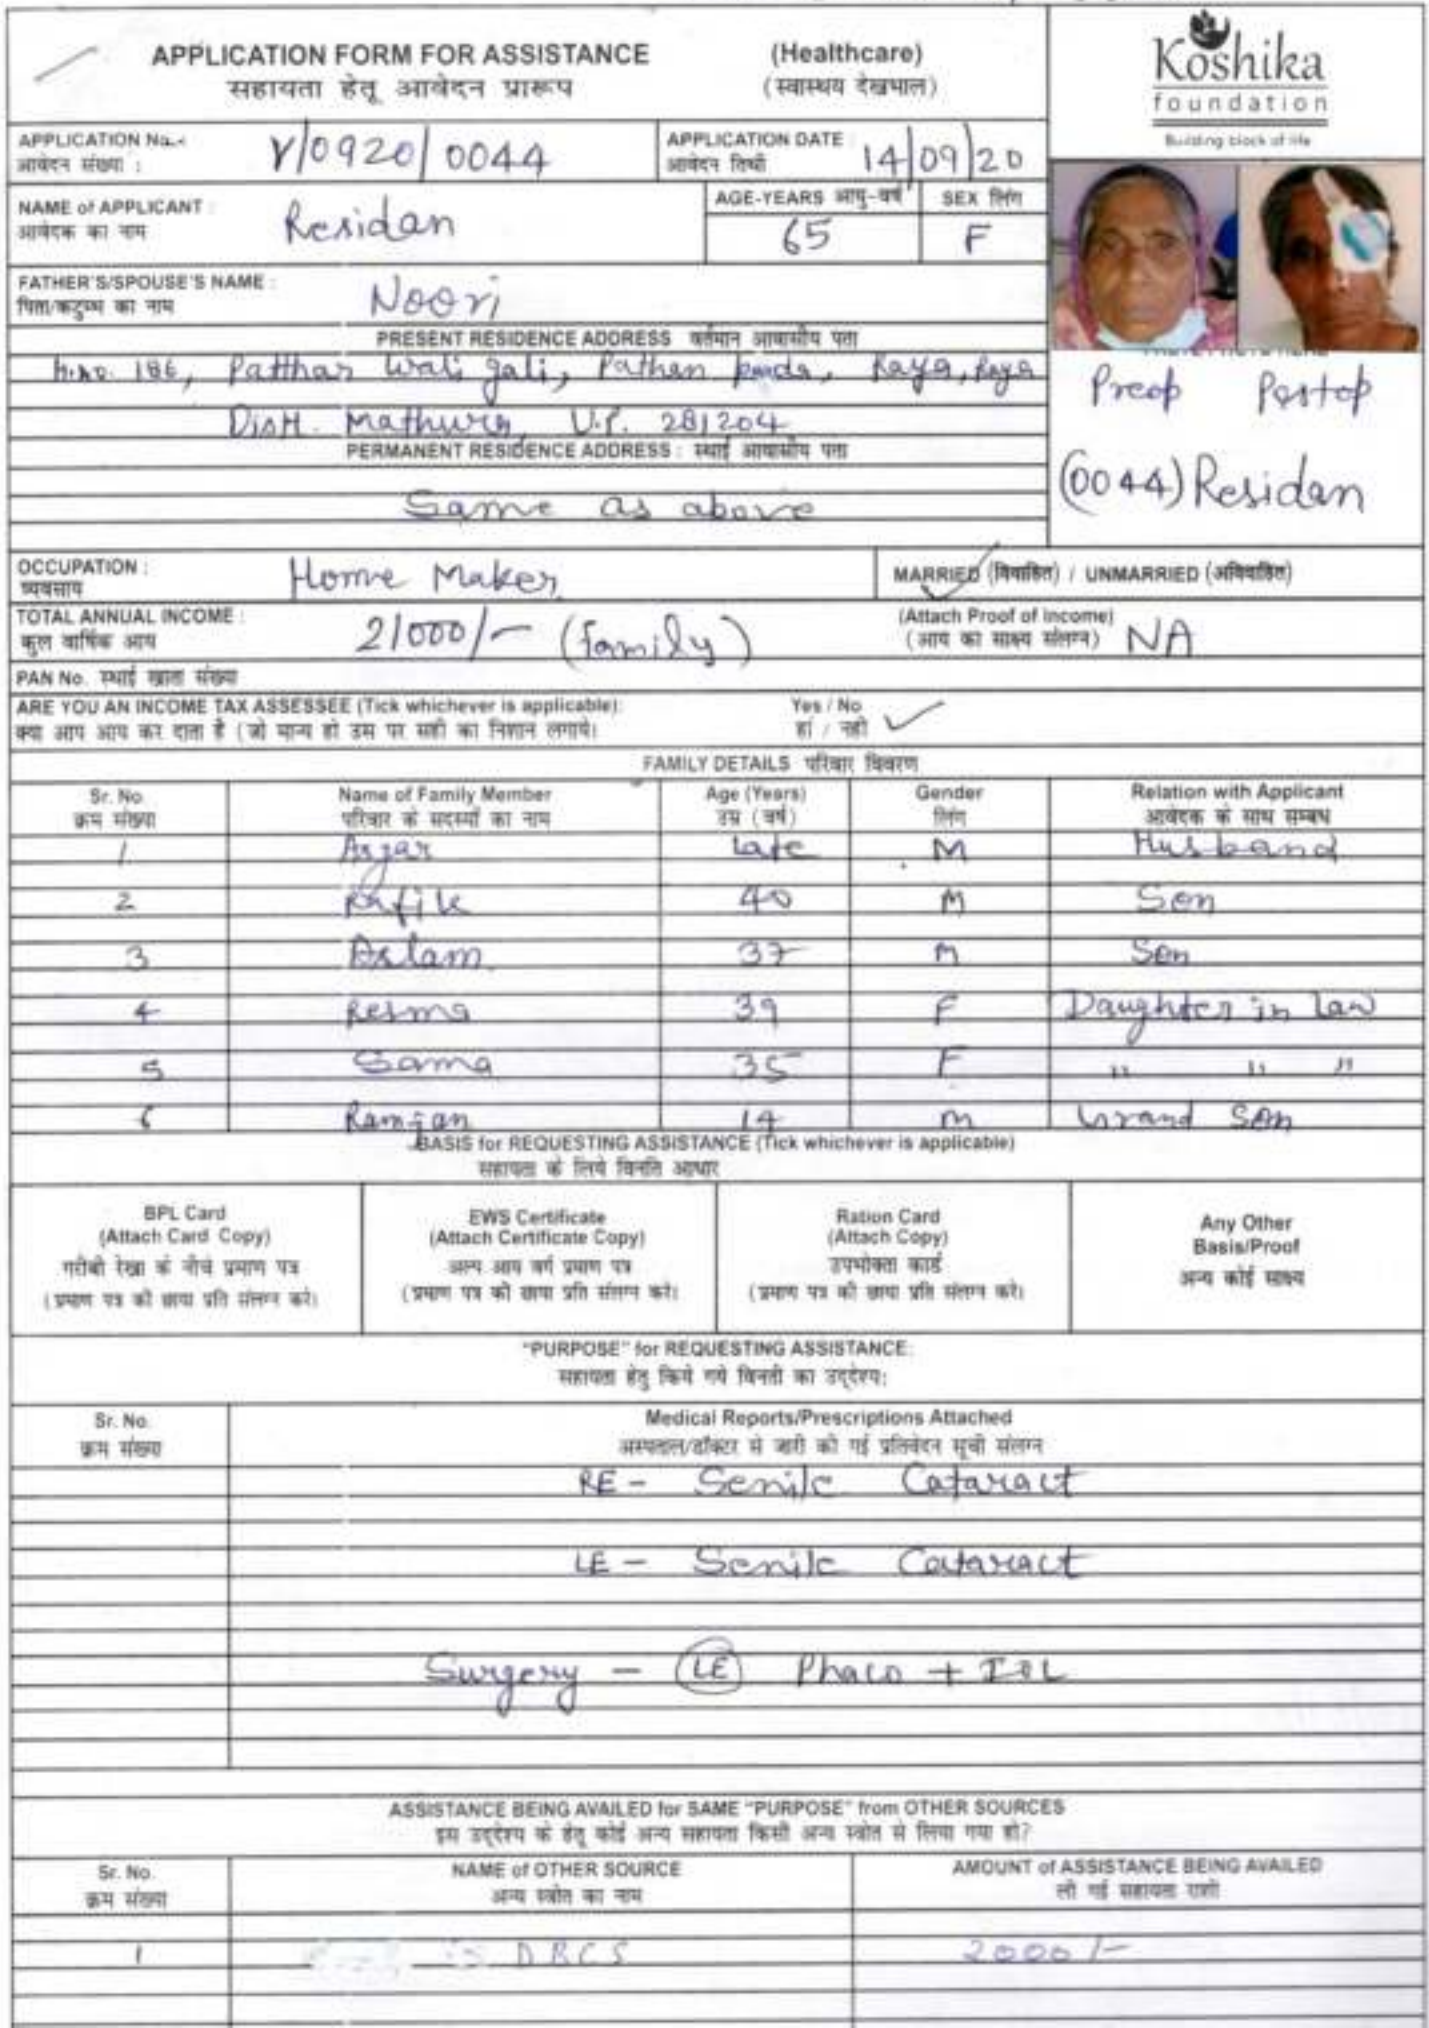 APPLICATION FORM FOR ASSISTANCE (Healthcare)
सहायता हेतू आवेदन प्रारूप (स्वास्थय देखभाल)
Koshika
foundation
Building block of life
APPLICATION No.: V/0920/0044 APPLICATION DATE 14/09/20
आवेदन संख्या : आवेदन तिथी
NAME of APPLICANT : Residan AGE-YEARS आयु-वर्ष 65 SEX लिंग F
आवेदक का नाम
FATHER'S/SPOUSE'S NAME : Noori
पिता/कटुम्ब का नाम
PRESENT RESIDENCE ADDRESS वर्तमान आवासीय पता
H.No. 186, Patthar Wali gali, Pathan pada, Raya, Raya
Distt. Mathura, U.P. 281204
Preop Postop
PERMANENT RESIDENCE ADDRESS : स्थाई आवासीय पता
Same as above
(0044) Residan
OCCUPATION : Home Maker MARRIED (विवाहित) / UNMARRIED (अविवाहित)
व्यवसाय
TOTAL ANNUAL INCOME : 21000/- (family) (Attach Proof of Income) NA
कुल वार्षिक आय (आय का साक्ष्य संलग्न)
PAN No. स्थाई खाता संख्या
ARE YOU AN INCOME TAX ASSESSEE (Tick whichever is applicable): Yes / No
क्या आप आय कर दाता है (जो मान्य हो उस पर सही का निशान लगाये। हां / नही ✓
FAMILY DETAILS परिवार विवरण
Sr. No. Name of Family Member Age (Years) Gender Relation with Applicant
क्रम संख्या परिवार के सदस्यों का नाम उम्र (वर्ष) लिंग आवेदक के साथ सम्बध
1 Asgar Late M Husband
2 Rafik 40 M Son
3 Aslam 37 M Son
4 Resma 39 F Daughter in law
5 Sama 35 F " " "
6 Ramjan 14 M Grand Son
BASIS for REQUESTING ASSISTANCE (Tick whichever is applicable)
सहायता के लिये विनति आधार
BPL Card
(Attach Card Copy)
गरीबी रेखा के नीचे प्रमाण पत्र
(प्रमाण पत्र की छाया प्रति संलग्न करे।
EWS Certificate
(Attach Certificate Copy)
अल्प आय वर्ग प्रमाण पत्र
(प्रमाण पत्र की छाया प्रति संलग्न करे।
Ration Card
(Attach Copy)
उपभोक्ता कार्ड
(प्रमाण पत्र की छाया प्रति संलग्न करे।
Any Other
Basis/Proof
अन्य कोई साक्ष्य
"PURPOSE" for REQUESTING ASSISTANCE:
सहायता हेतु किये गये विनती का उद्देश्य:
Sr. No. Medical Reports/Prescriptions Attached
क्रम संख्या अस्पताल/डॉक्टर से जारी की गई प्रतिवेदन सूची संलग्न
RE - Senile Cataract
LE - Senile Cataract
Surgery - LE Phaco + IOL
ASSISTANCE BEING AVAILED for SAME "PURPOSE" from OTHER SOURCES
इस उद्देश्य के हेतू कोई अन्य सहायता किसी अन्य स्त्रोत से लिया गया हो?
Sr. No. NAME of OTHER SOURCE AMOUNT of ASSISTANCE BEING AVAILED
क्रम संख्या अन्य स्त्रोत का नाम ली गई सहायता राशी
1 DBCS 2000/-